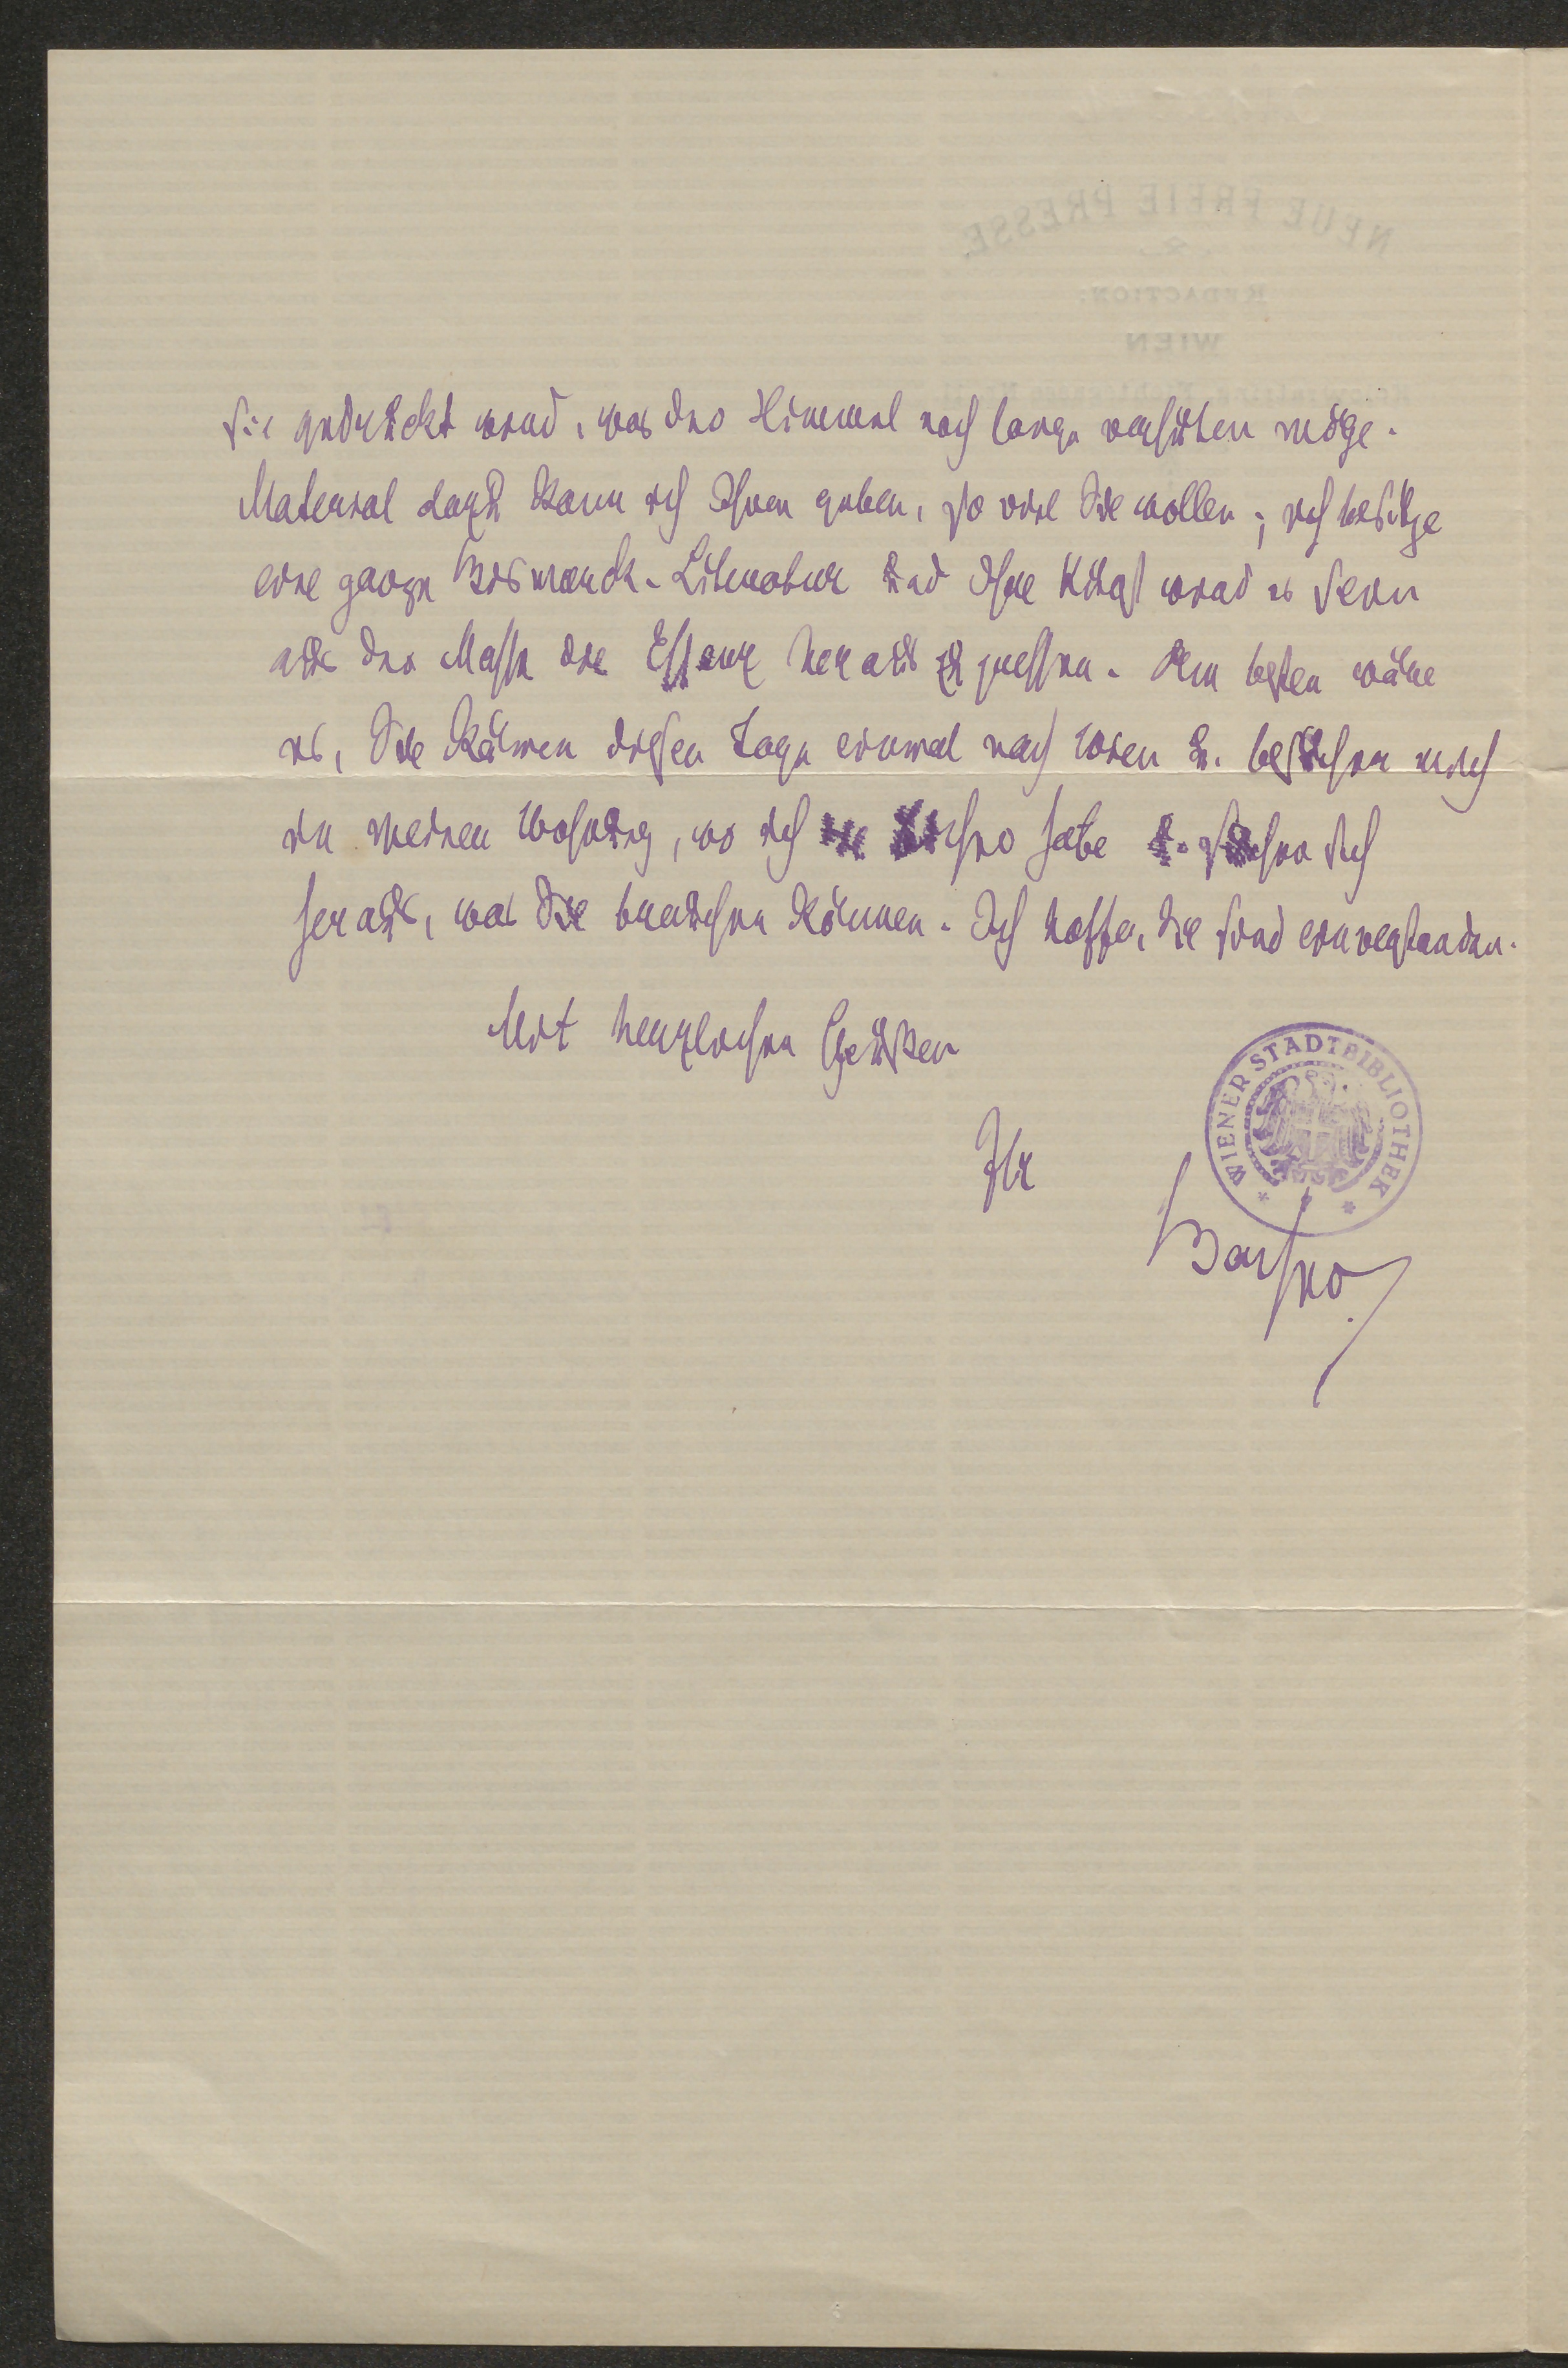 sie gedruckt wird, was der Himmel noch lange verhüten möge.
Material dazu kann ich Ihnen geben, so viel Sie wollen; ich besitze
eine ganze Bismarck-Literatur und Ihre Kunst wird es sein
aus der Masse die Essenz heraus zu pressen. Am besten wäre
es, Sie kämen diesen Tage einmal nach Wien u. besuchen mich
in meiner Wohnung, wo ich die Bücher habe u. suchen sich
heraus, was Sie brauchen können. Ich hoffe, Sie sind einverstanden.
Mit herzlichen Grüßen
Ihr
Bacher
WIENER STADTBIBLIOTHEK
NEUE FREIE PRESSE
REDACTION:
WIEN